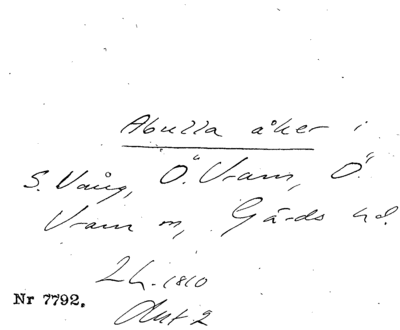 Abulla åker i
S. Vång, Ö. Vram, Ö.
Vram sn, Gärds hd.
Lh. 1810
Akt 2
Nr 7792.